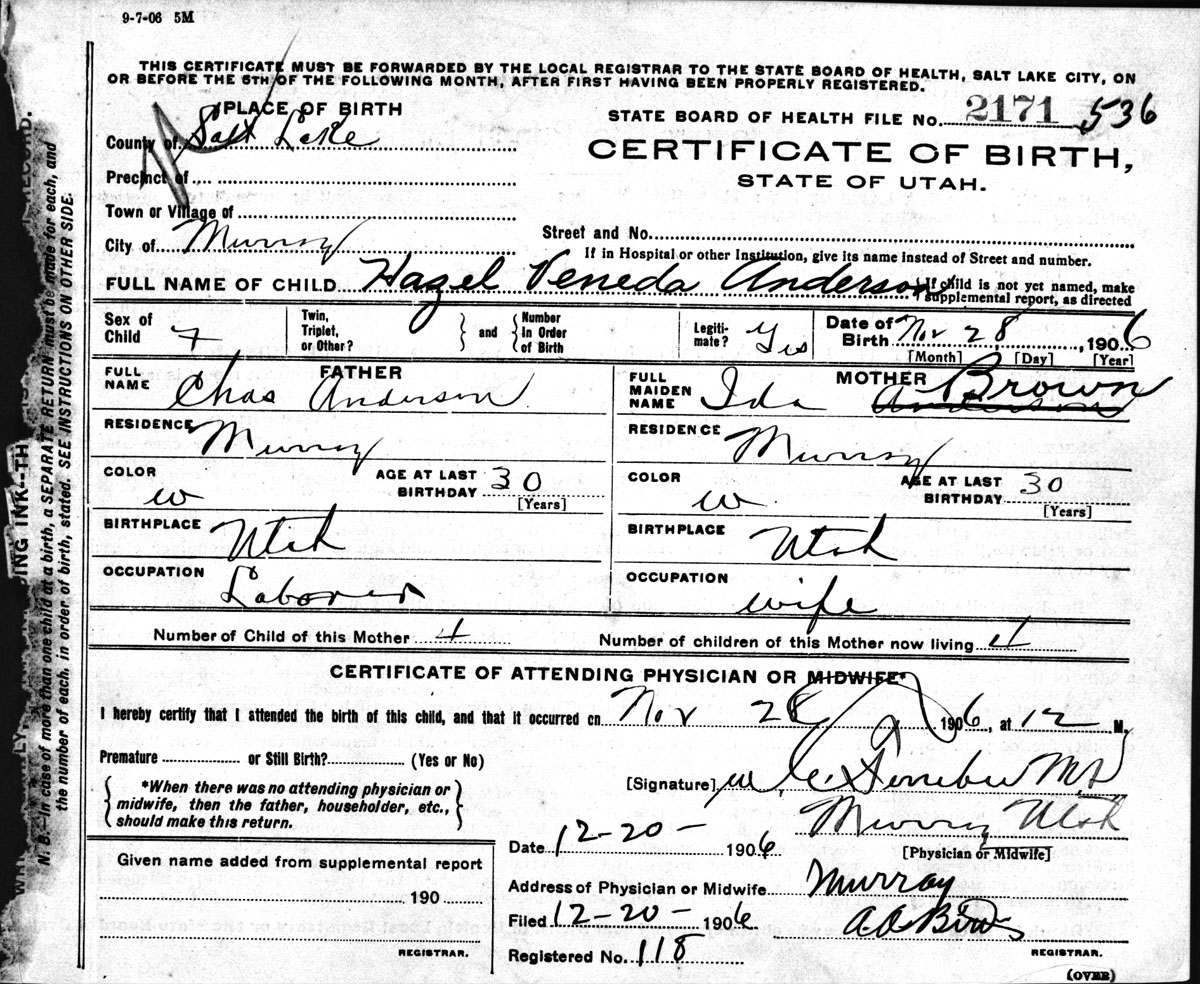 9-7-06 5M
THIS CERTIFICATE MUST BE FORWARDED BY THE LOCAL REGISTRAR TO THE STATE BOARD OF HEALTH, SALT LAKE CITY, ON
OR BEFORE THE 5TH OF THE FOLLOWING MONTH, AFTER FIRST HAVING BEEN PROPERLY REGISTERED.
PLACE OF BIRTH
County of Salt Lake
Precinct of
Town or Village of
City of Murray
STATE BOARD OF HEALTH FILE No. 2171 536
CERTIFICATE OF BIRTH,
STATE OF UTAH.
Street and No.
If in Hospital or other Institution, give its name instead of Street and number.
FULL NAME OF CHILD Hazel Veneda Anderson
If child is not yet named, make
supplemental report, as directed
Sex of Child F
Twin, Triplet, or Other?
and
Number in Order of Birth
Legiti-mate? Yes
Date of Birth Nov 28, 1906
[Month] [Day] [Year]
FATHER
FULL NAME Chas Anderson
RESIDENCE Murray
COLOR W
AGE AT LAST BIRTHDAY 30
[Years]
BIRTHPLACE Utah
OCCUPATION Laborer
MOTHER
FULL MAIDEN NAME Ida Anderson Brown
RESIDENCE Murray
COLOR W
AGE AT LAST BIRTHDAY 30
[Years]
BIRTHPLACE Utah
OCCUPATION wife
Number of Child of this Mother 4
Number of children of this Mother now living 4
CERTIFICATE OF ATTENDING PHYSICIAN OR MIDWIFE*
I hereby certify that I attended the birth of this child, and that it occurred on Nov 28 1906, at 12 M.
Premature or Still Birth? (Yes or No)
*When there was no attending physician or
midwife, then the father, householder, etc.,
should make this return.
[Signature] M.D.
Murray Utah
[Physician or Midwife]
Date 12-20- 1906
Address of Physician or Midwife Murray
Filed 12-20- 1906
REGISTRAR.
Registered No. 118
Given name added from supplemental report
190
REGISTRAR.
(OVER)
N. B.—In case of more than one child at a birth, a SEPARATE RETURN must be made for each, and
the number of each, in order of birth, stated. SEE INSTRUCTIONS ON OTHER SIDE.